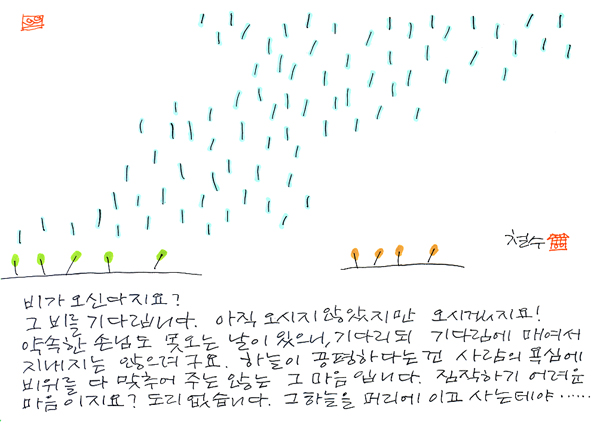 철수
비가 오신다지요?
그 비를 기다립니다. 아직 오시지 않았지만 오시겠지요!
약속한 손님도 못오는 날이 있으니, 기다리되 기다림에 매여서
지내지는 않으려구요. 하늘이 공평하다는건 사람의 욕심에
비위를 다 맞추어 주는 않는 그 마음입니다. 짐작하기 어려운
마음이지요? 도리 없습니다. 그하늘을 머리에 이고 사는테야......